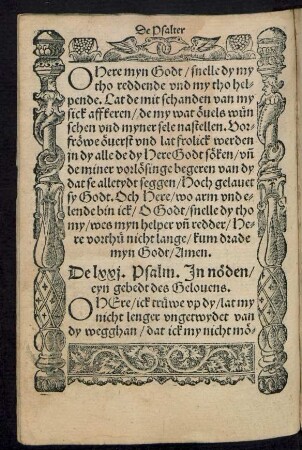 De Psalter
O Here myn Godt/ snelle dy my
tho reddende vnd my tho hel-
pende. Lat de mit schanden van my
sick affkeren/ de my wat öuels wün
schen vnd myner sele nastellen. Vor-
fröwe öuerst vnd lat frolick werden
in dy alle de dy Here Godt söken/ vn̄
de miner vorlösinge begeren van dy
dat se alletydt seggen/ Hoch gelauet
sy Godt. Och Here/ wo arm vnd e-
lende bin ick/ O Godt/ snelle dy tho
my/ wes myn helper vn̄ redder/ He-
re vorthü nicht lange/ kum drade
myn Godt/ Amen.
De lxxj. Psalm. In nöden/
eyn gebedt des Gelouens.
O HEre/ ick trüwe vp dy/ lat my
nicht lenger vngetwydet van
dy wegghan/ dat ick my nicht mö-